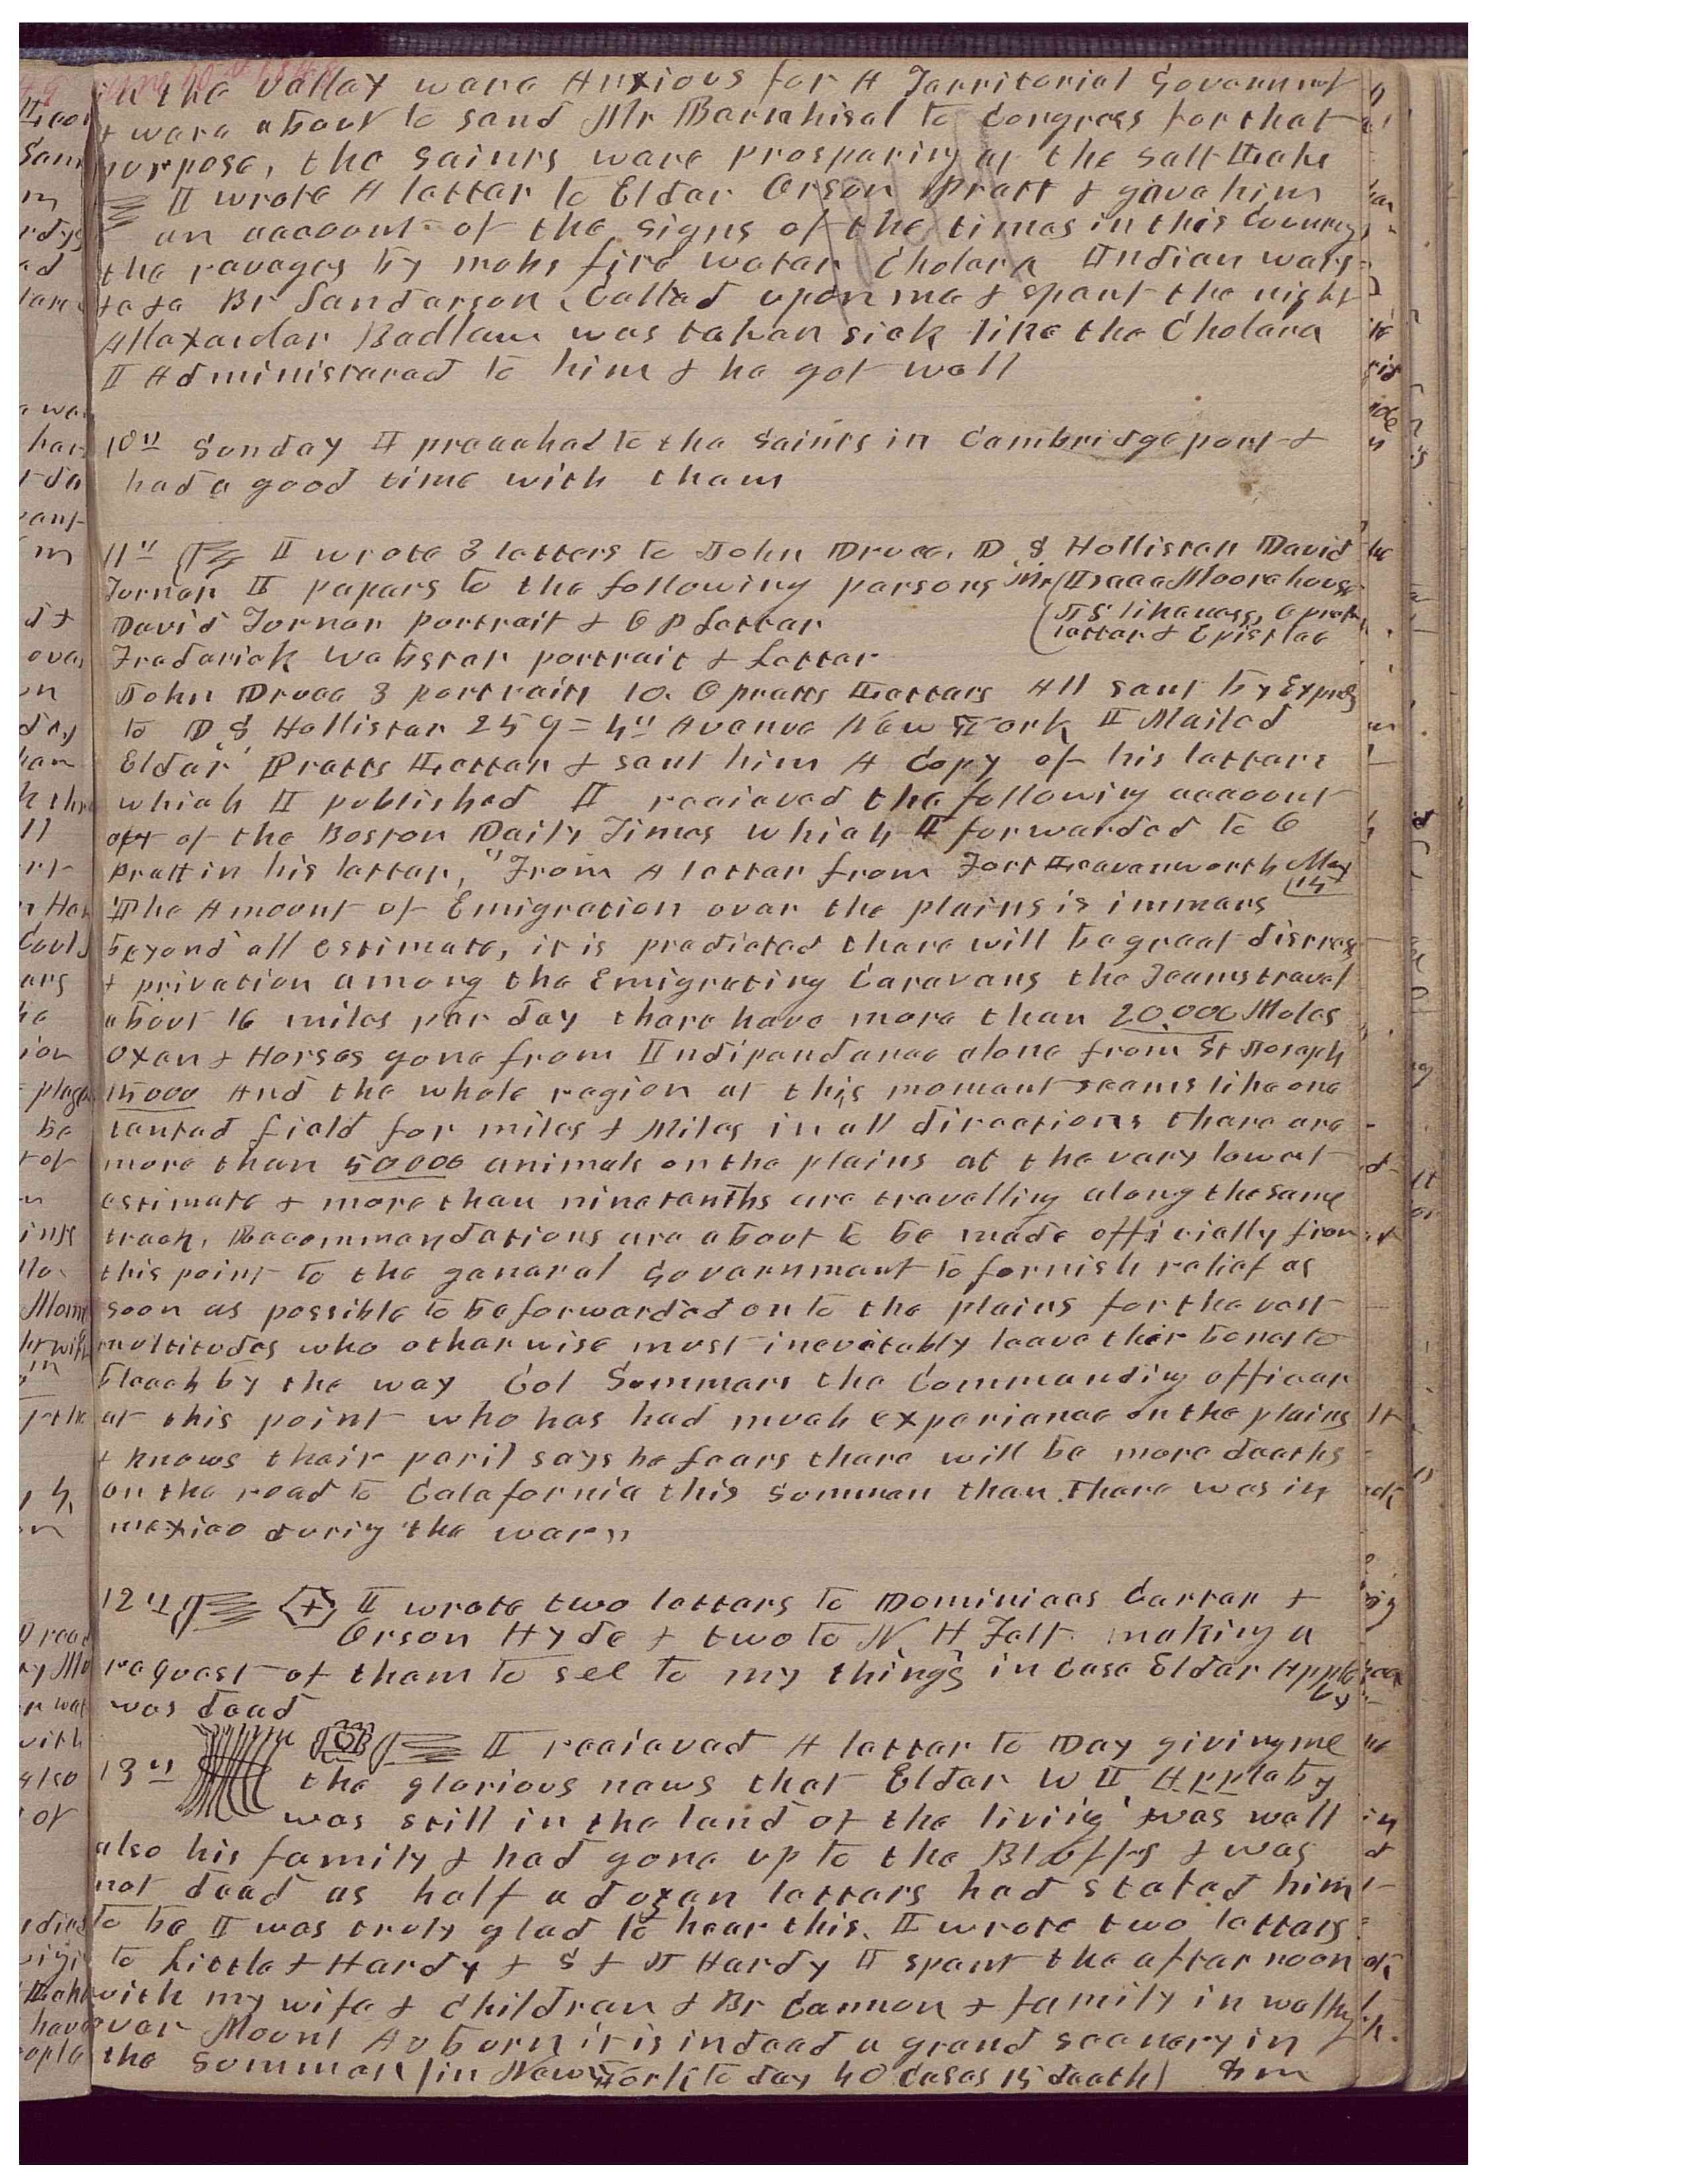 June 10th 1849
in the valley were Anxious for A Territorial Government
& were about to send Mr Barnhisel to Congress for that
purpose, the saints were prospering at the Salt Lake
I wrote A letter to Elder Orson Pratt & gave him
an account of the signs of the times in this Country
the ravages by mobs fire water Cholera Indian wars
Br Sanderson Called upon me & spent the night
Allexander Badlam was taken sick like the Cholera
I Administered to him & he got well
10th Sunday I preached to the Saints in Cambridgeport &
had a good time with them
11th I wrote 3 letters to John Druce, D S Hollister David
Turner II papers to the following persons Mr (Isaac Moorehouse
David Turner portrait & O P Letter (JS likeness, O Pratt
letter & Epistles
Frederick Webster portrait & Letter
John Druce 3 portraits 10. O pratts Letters All sent by Express
to D S Hollister 259 = 4th Avenue New York I Mailed
Elder Pratts Letter & sent him A Copy of his letters
which I published I received the following account
out of the Boston Daily Times which I forwarded to O
Pratt in his letter, "From A letter from Fort Leavenworth May
14
The Amount of Emigration over the plains is immens
beyond all estimate, it is predicted there will be great distress
& privation among the Emigrating Caravans the Teams travel
about 16 miles per day there have more than 20,000 Mules
Oxen & Horses gone from Indipendence alone from St Joseph
15000 And the whole region at this moment seems like one
tented field for miles & Miles in all directions there are
more than 50,000 animals on the plains at the very lowest
estimate & more than ninetenths are travelling along the same
track, Reccommendations are about to be made officially from
this point to the general Government to furnish relief as
soon as possible to be forwarded on to the plains for the vast
multitudes who otherwise must inevitably leave their bones to
bleach by the way Col Summers the Commanding officer
at this point who has had much experience on the plains
& knows their peril says he fears there will be more deaths
on the road to Calafornia this summer than there was in
mexico during the war"
12th I wrote two letters to Dominicas Carter &
Orson Hyde & two to N. H. Felt making a
request of them to see to my things in case Elder Appleby
was dead
13th I received A letter to Day giving me
the glorious news that Elder W I Appleby
was still in the land of the living was well
also his family & had gone up to the Bluffs & was
not dead as half a dozen letters had stated him
to be I was truly glad to hear this. I wrote two letters
to Little & Hardy & S & J Hardy I spent the afternoon
with my wife & Children & Br Cannon & family in walking
over Mount Auburn it is indeed a grand scenery in
the summer (in New York to day 40 cases 15 death) 8 m